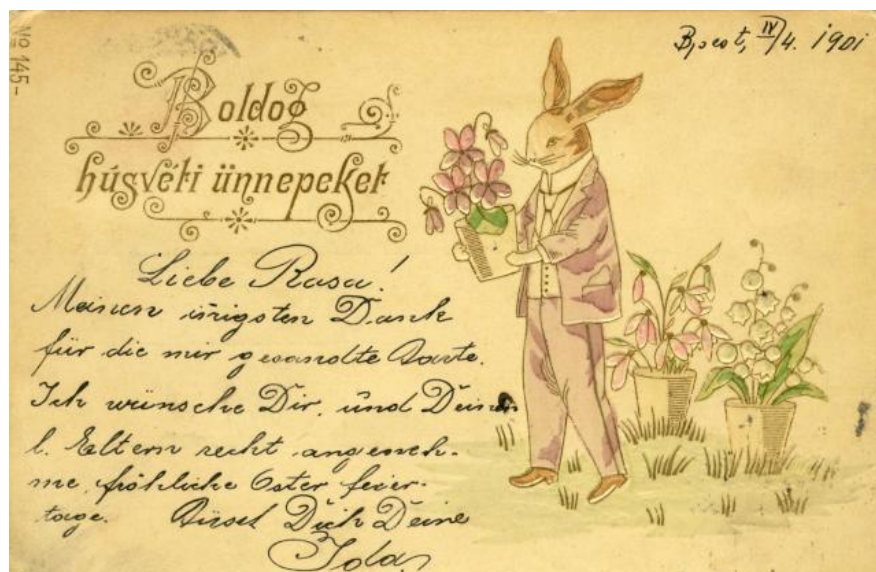 No 145-
Bpest, IV/4. 1901
Boldog
húsvéti ünnepeket
Liebe Rosa!
Meinen innigsten Dank
für die mir gesandte Karte.
Ich wünsche Dir, und Deinen
l. Eltern recht angeneh-
me, fröhliche Oster feier-
tage. Küsst Dich Deine
Ida